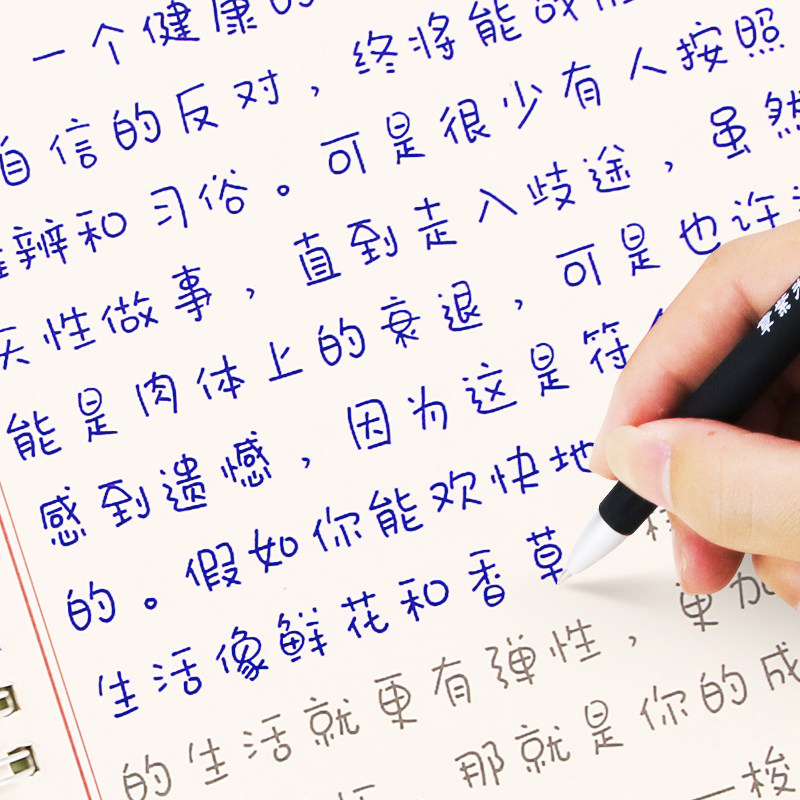 一个健康的
自信的反对，终将能战胜
辨和习俗。可是很少有人按照
性做事，直到走入歧途，虽然
能是肉体上的衰退，可是也许
感到遗憾，因为这是符
的。假如你能欢快地
生活像鲜花和香草
的生活就更有弹性，更加
那就是你的成
一梭